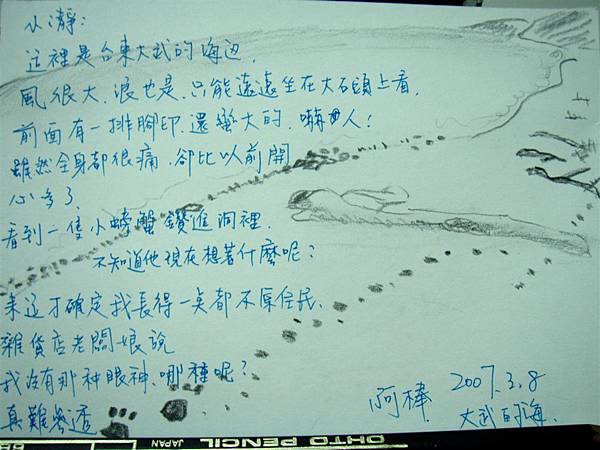 小瀞:
这裡是台東大武的海边.
風很大.浪也是.只能遠遠坐在大石頭上看.
前面有一排腳印.還蠻大的.嚇人!
雖然全身都很痛.卻比以前開
心多了.
看到一隻小螃蟹鑽進洞裡.
不知道他現在想著什麼呢?
來这才確定我長得一点都不原住民.
雜貨店老闆娘說
我沒有那种眼神、哪種呢?
真難參透
阿棒 2007.3.8
大武的海.
JAPAN OHTO PENCIL